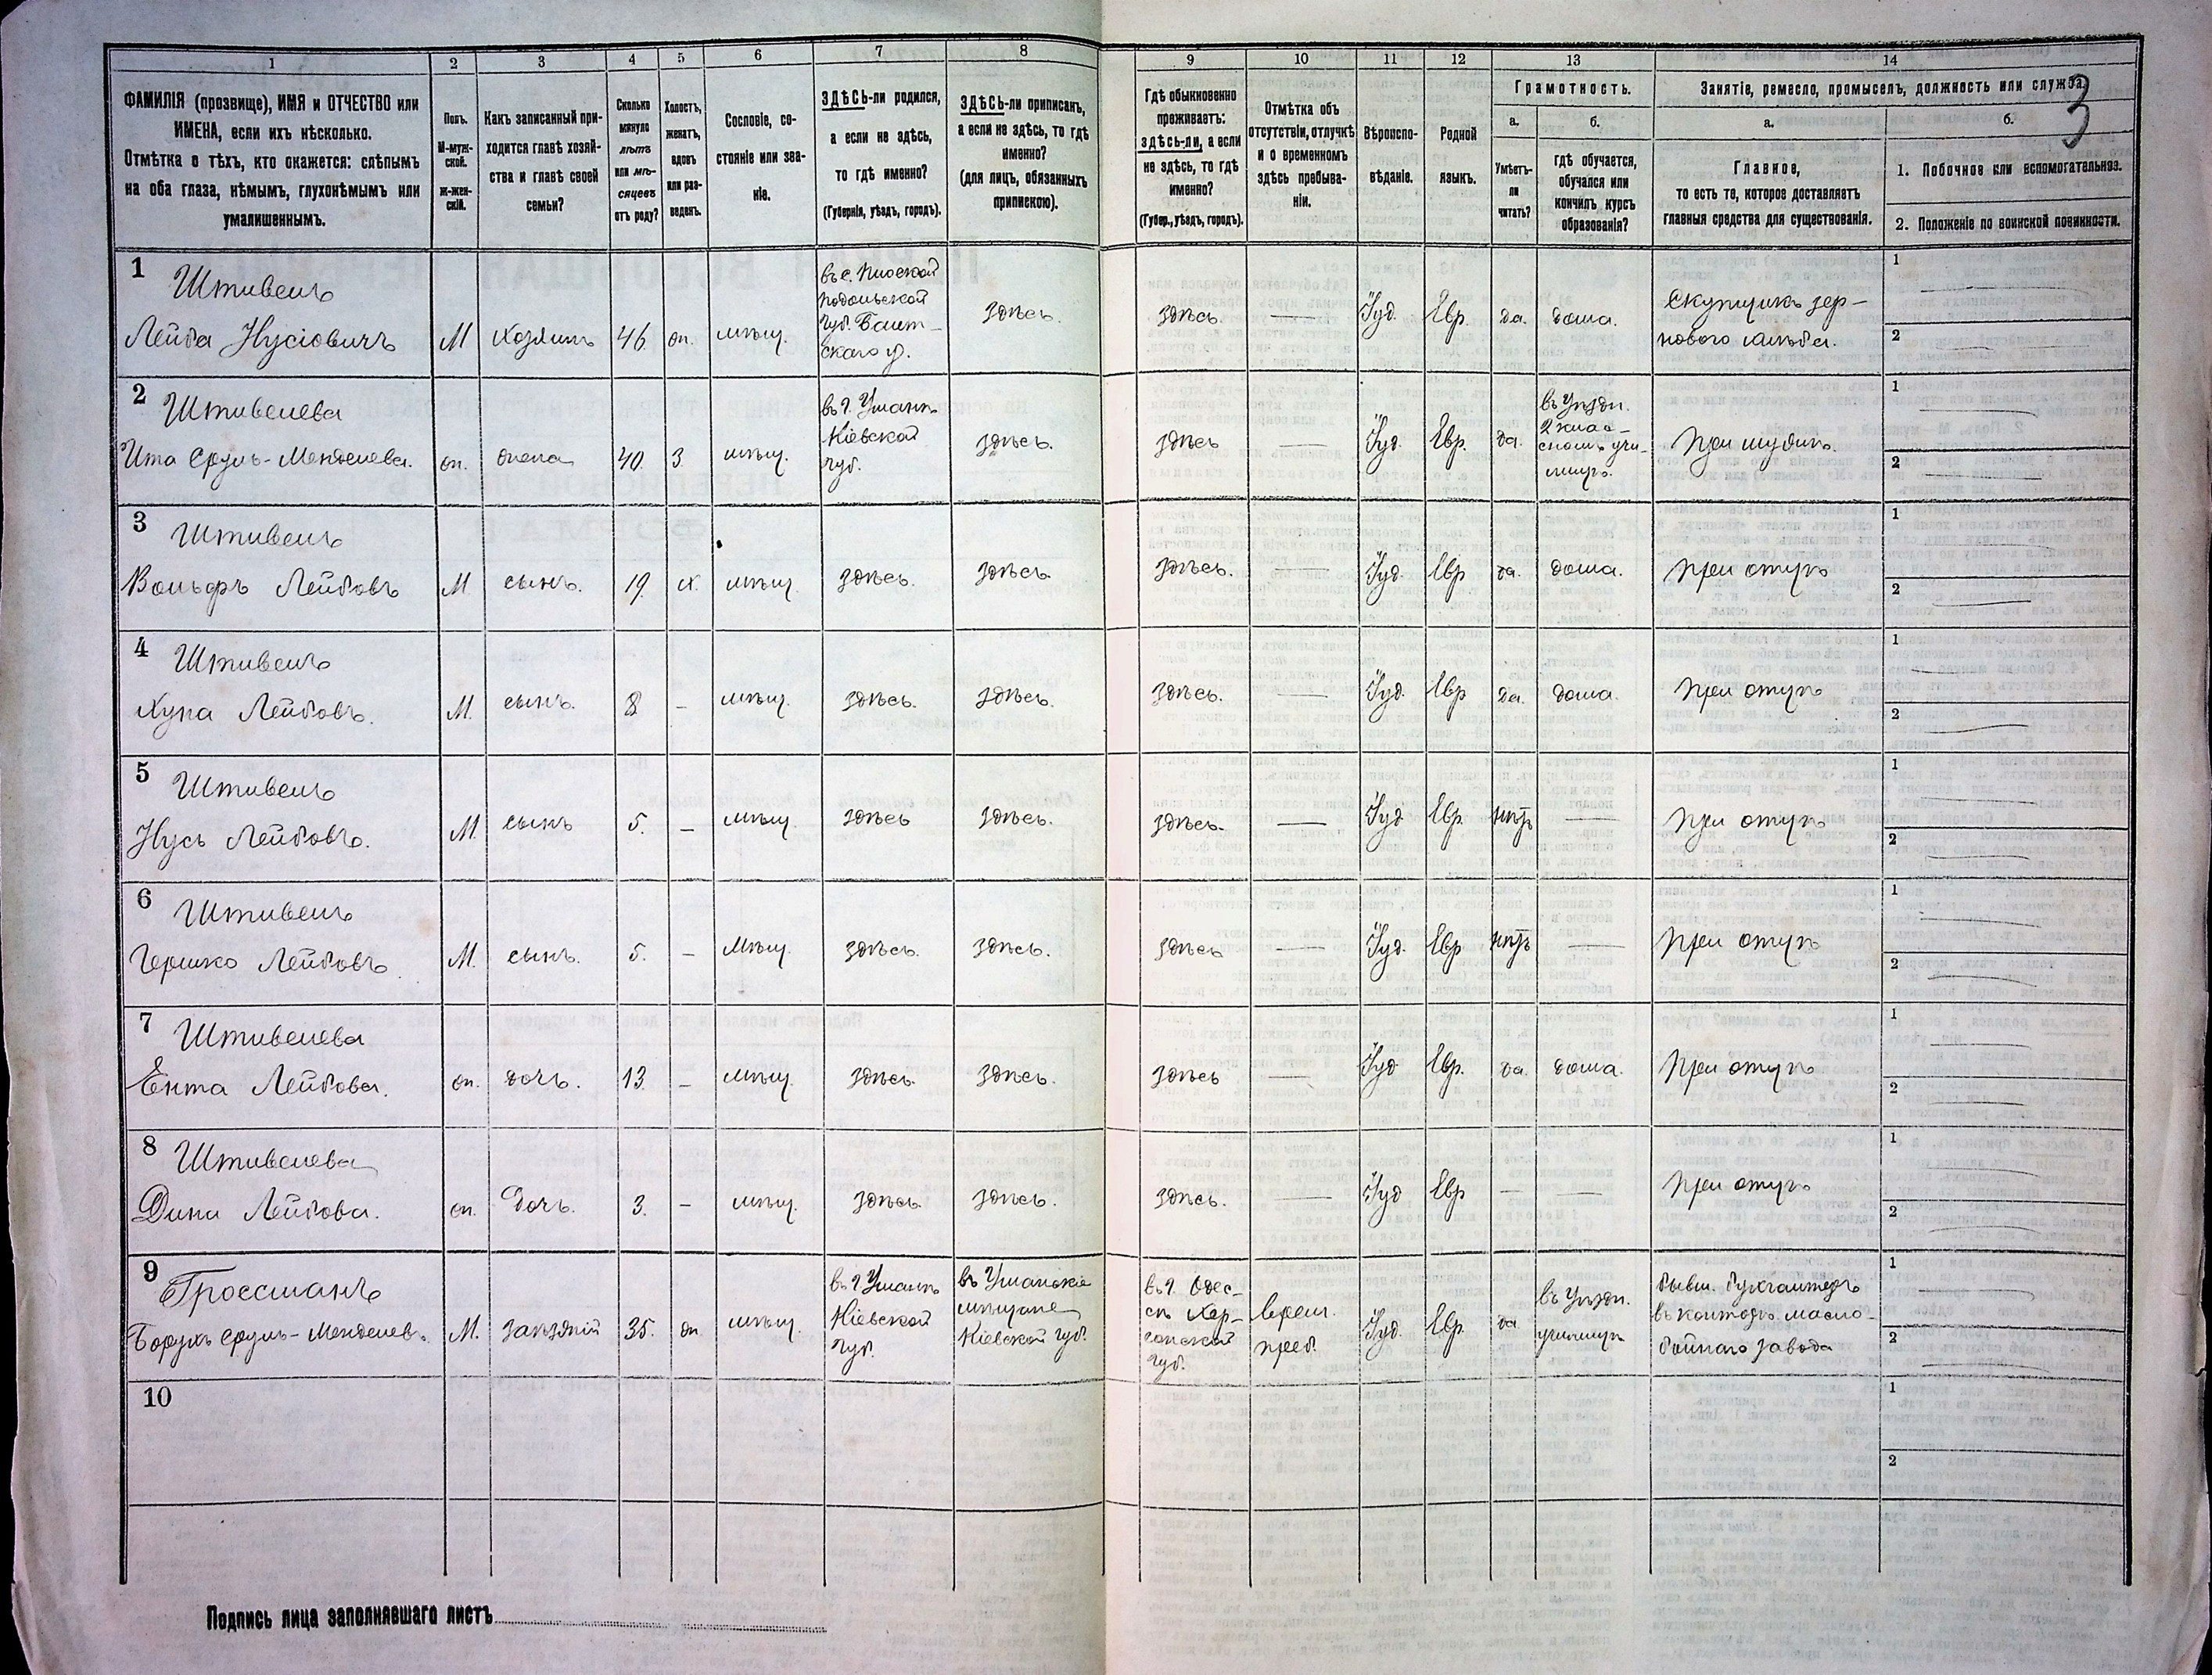 1 2 3 4 5 6 7 8 9 10 11 12 13 14
3
ФАМИЛІЯ (прозвище), ИМЯ и ОТЧЕСТВО или
ИМЕНА, если ихъ нѣсколько.
Отмѣтка о тѣхъ, кто окажется: слѣпымъ
на оба глаза, нѣмымъ, глухонѣмымъ или
умалишеннымъ.
Полъ.
М-муж-
ской.
Ж-жен-
скій.
Какъ записанный при-
ходится главѣ хозяй-
ства и главѣ своей
семьи?
Сколько
минуло
лѣтъ
или мѣ-
сяцевъ
отъ роду?
Холостъ,
женатъ,
вдовъ
или раз-
веденъ.
Сословіе, со-
стояніе или зва-
ніе.
ЗДѢСЬ-ли родился,
а если не здѣсь,
то гдѣ именно?
(Губернія, уѣздъ, городъ).
ЗДѢСЬ-ли приписанъ,
а если не здѣсь, то гдѣ
именно?
(для лицъ, обязанныхъ
припискою).
Гдѣ обыкновенно
проживаетъ:
здѣсь-ли, а если
не здѣсь, то гдѣ
именно?
(Губер., уѣздъ, городъ).
Отмѣтка объ
отсутствіи, отлучкѣ
и о временномъ
здѣсь пребыва-
ніи.
Вѣроиспо-
вѣданіе.
Родной
языкъ.
Грамотность.
а.
Умѣетъ-
ли
читать?
б.
гдѣ обучается,
обучался или
кончилъ курсъ
образованія?
Занятіе, ремесло, промыселъ, должность или служба.
а.
Главное,
то есть то, которое доставляетъ
главныя средства для существованія.
б.
1. Побочное или вспомогательное.
2. Положеніе по воинской повинности.
1
Штивель
Лейба Нусіовичъ
М
хозяинъ
46.
жн.
мѣщ.
въ с. Пиской
Подольской
губ. Балт-
скаго у.
здѣсь.
здѣсь.
—
Іуд.
Евр.
да.
дома.
Скупщикъ зер-
нового хлѣба.
1 —
2 —
2
Штивелева
Ита Сруль-Менделева.
ж.
жена
40.
З.
мѣщ.
въ г. Умань
Кіевской
губ.
здѣсь.
здѣсь
—
Іуд.
Евр.
да.
въ Уѣздн.
2 клас-
сномъ учи-
лищѣ.
При мужѣ.
1 —
2 —
3
Штивель
Вольфъ Лейбовъ
М.
сынъ.
19.
х.
мѣщ.
здѣсь.
здѣсь.
здѣсь.
—
Іуд.
Евр
да.
дома.
При отцѣ
1 —
2 —
4
Штивель
Хуна Лейбовъ.
М.
сынъ.
8
-
мѣщ.
здѣсь.
здѣсь.
здѣсь.
—
Іуд.
Евр
да.
дома.
При отцѣ
1 —
2 —
5
Штивель
Нусь Лейбовъ.
М.
сынъ
5.
-
мѣщ.
здѣсь
здѣсь.
здѣсь.
—
Іуд
Евр.
нѣтъ
—
При отцѣ
1 —
2 —
6
Штивель
Гершко Лейбовъ.
М.
сынъ.
5.
-
Мѣщ.
здѣсь.
здѣсь.
здѣсь
—
Іуд.
Евр
нѣтъ
—
При отцѣ
1 —
2 —
7
Штивелева
Ента Лейбова.
ж.
дочь.
13.
-
мѣщ.
здѣсь.
здѣсь.
здѣсь
—
Іуд
Евр.
да.
дома.
При отцѣ
1 —
2 —
8
Штивелева
Дина Лейбова.
ж.
Дочь.
3.
-
мѣщ.
здѣсь.
здѣсь.
здѣсь.
—
Іуд
Евр
—
—
При отцѣ
1 —
2 —
9
Гроссманъ
Борухъ Сруль-Менделев.
М.
Заѣзжій
35.
жн.
мѣщ.
въ г. Умань
Кіевской
губ.
въ Уманскіе
мѣщане
Кіевской губ.
въ г. Одес-
сѣ Хер-
сонской
губ.
Врем.
преб.
Іуд.
Евр.
да
въ Уѣздн.
училищѣ
бывш. бухгалтеръ
въ конторѣ масло-
бойнаго завода
1 —
2 —
10
1
2
Подпись лица заполнявшаго листъ